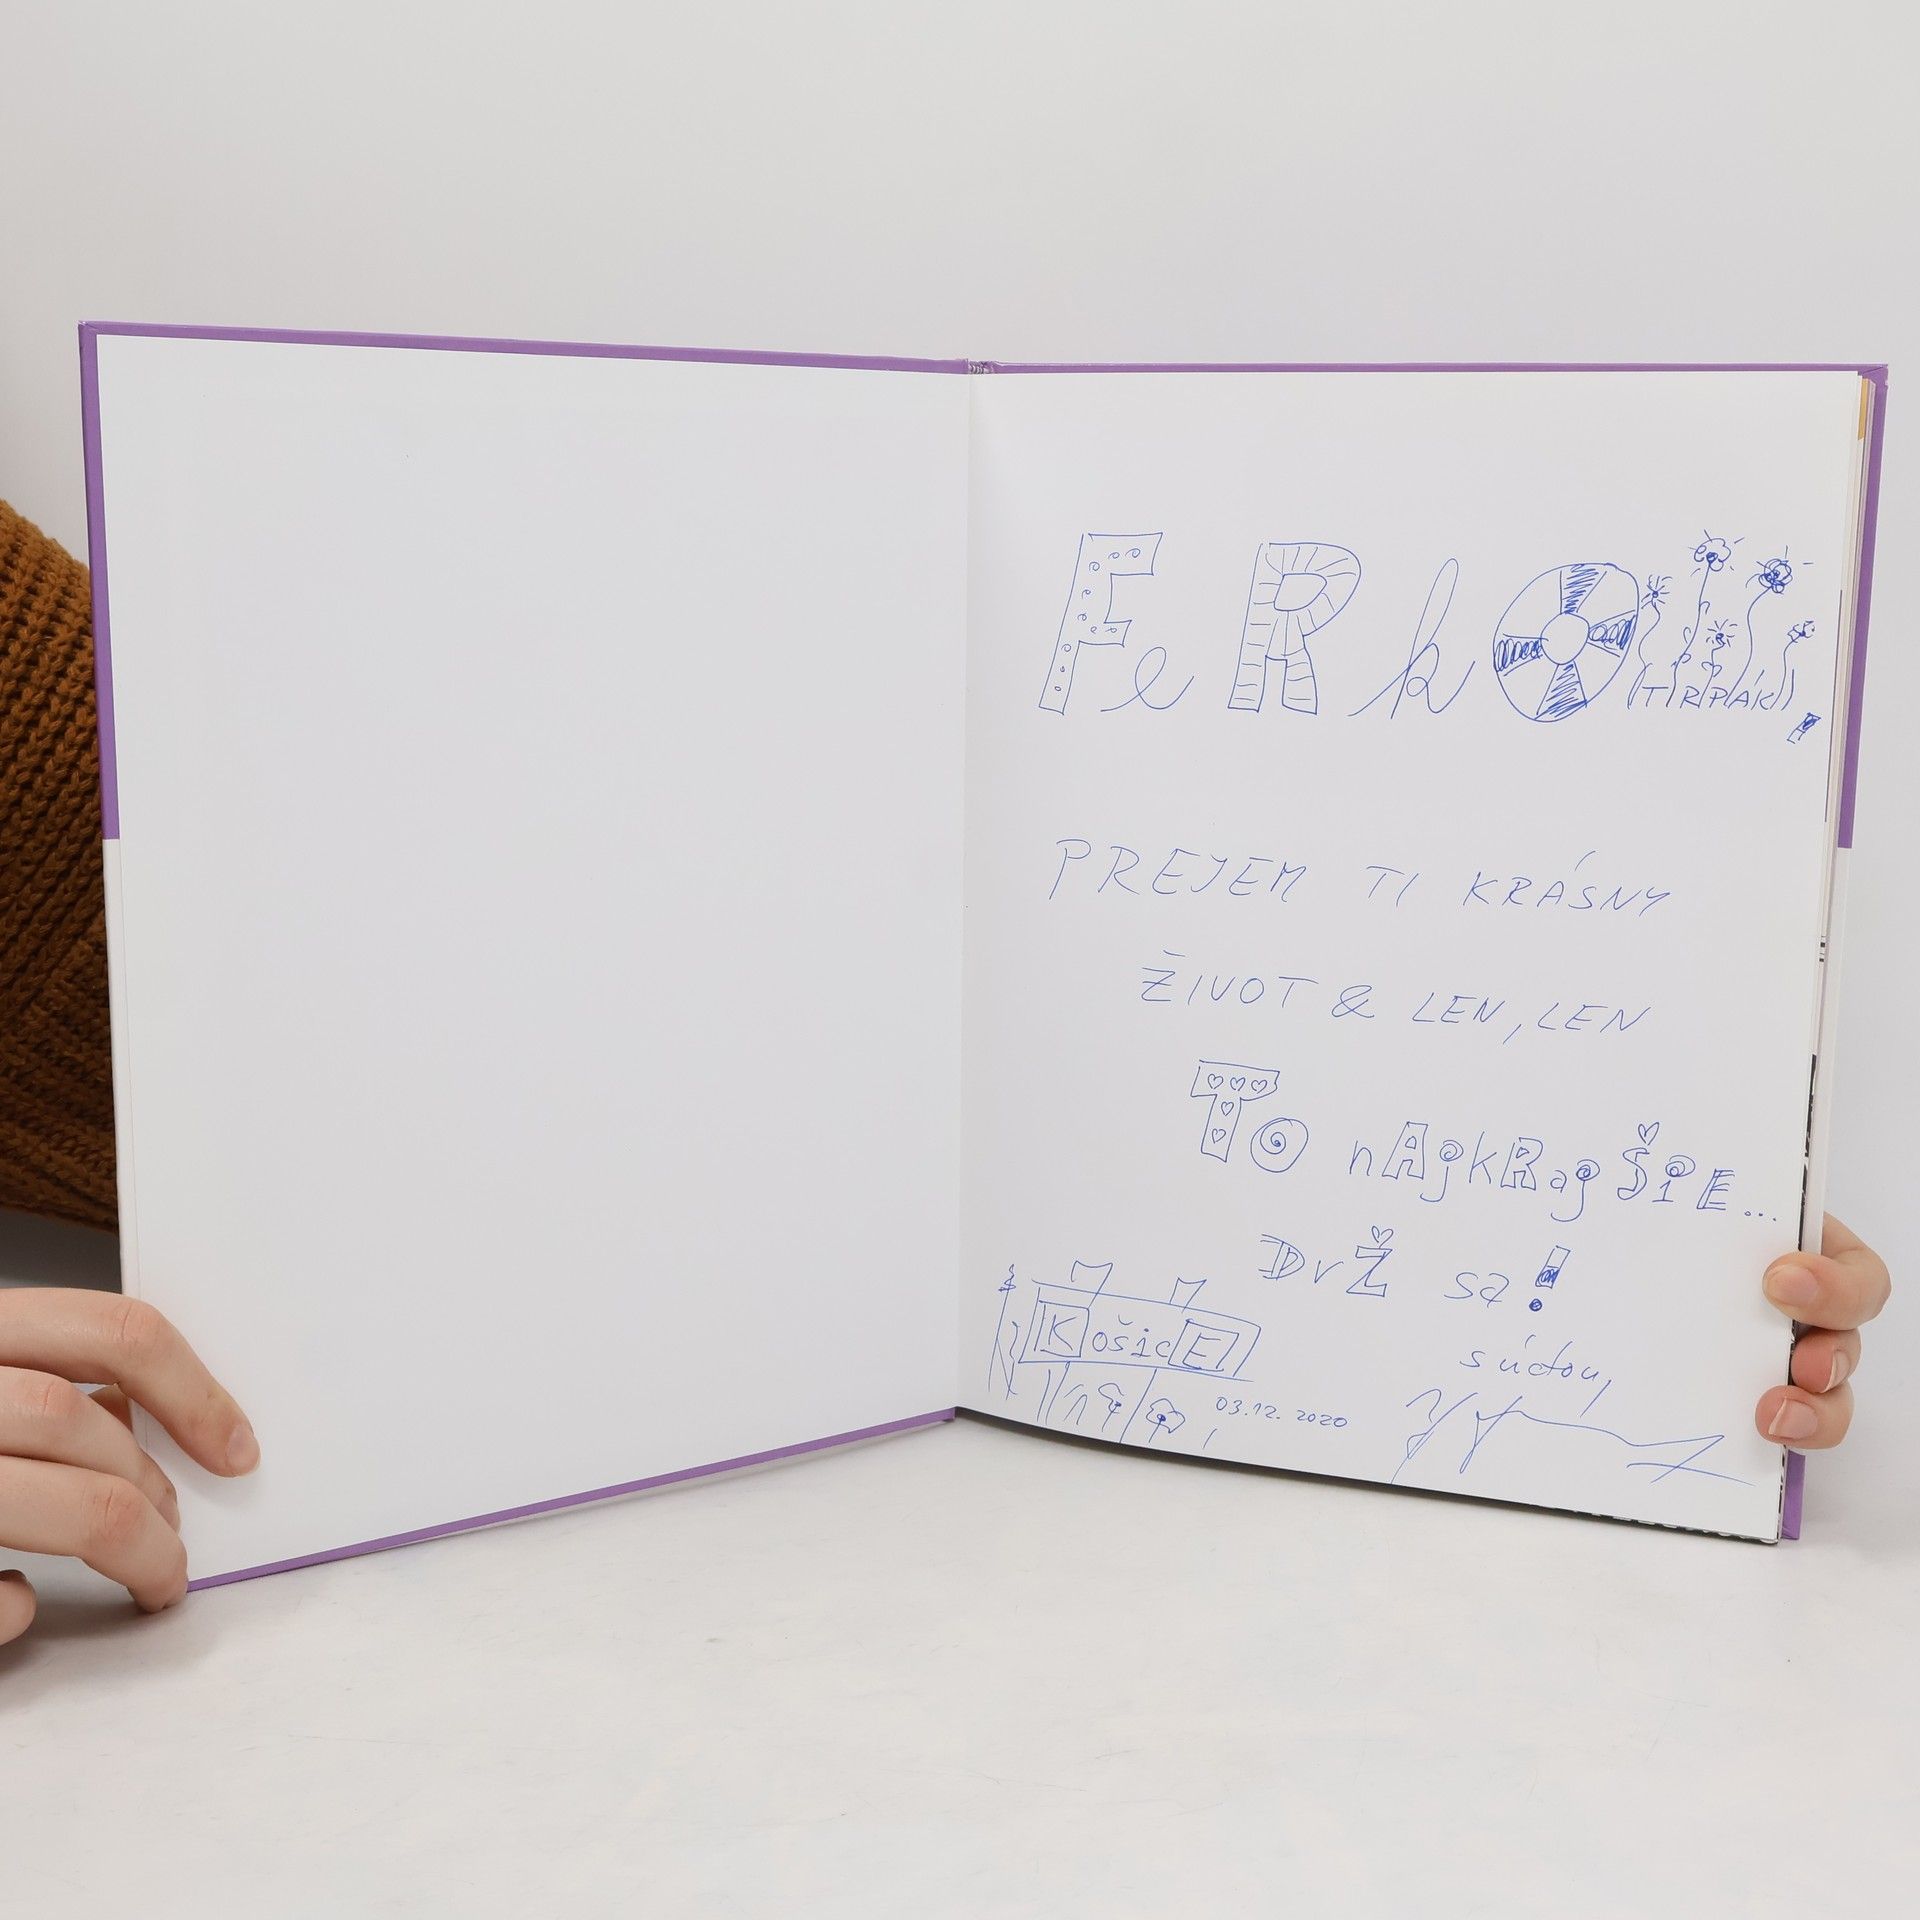 FeRkO TIRPÁK,
PREJEM TI KRÁSNY
ŽIVOT & LEN, LEN
TO nAjkRajŠiE...
DrŽ sa!
s úctou,
KošicE
03.12.2020